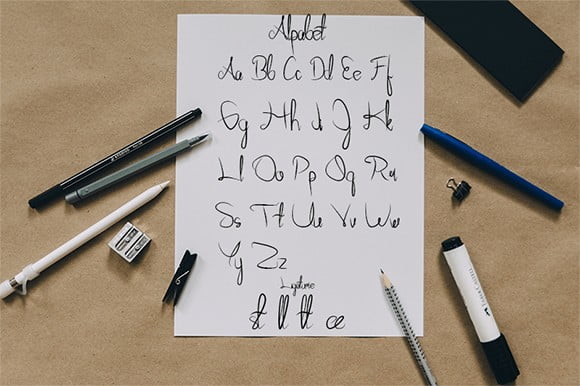 Alpabet
Aa Bb Cc Dd Ee Ff
Gg Hh Ii Jj Kk
Ll Oo Pp Qq Rr
Ss Tt Uu Vv Ww
Yy Zz
Ligature
st ll tt